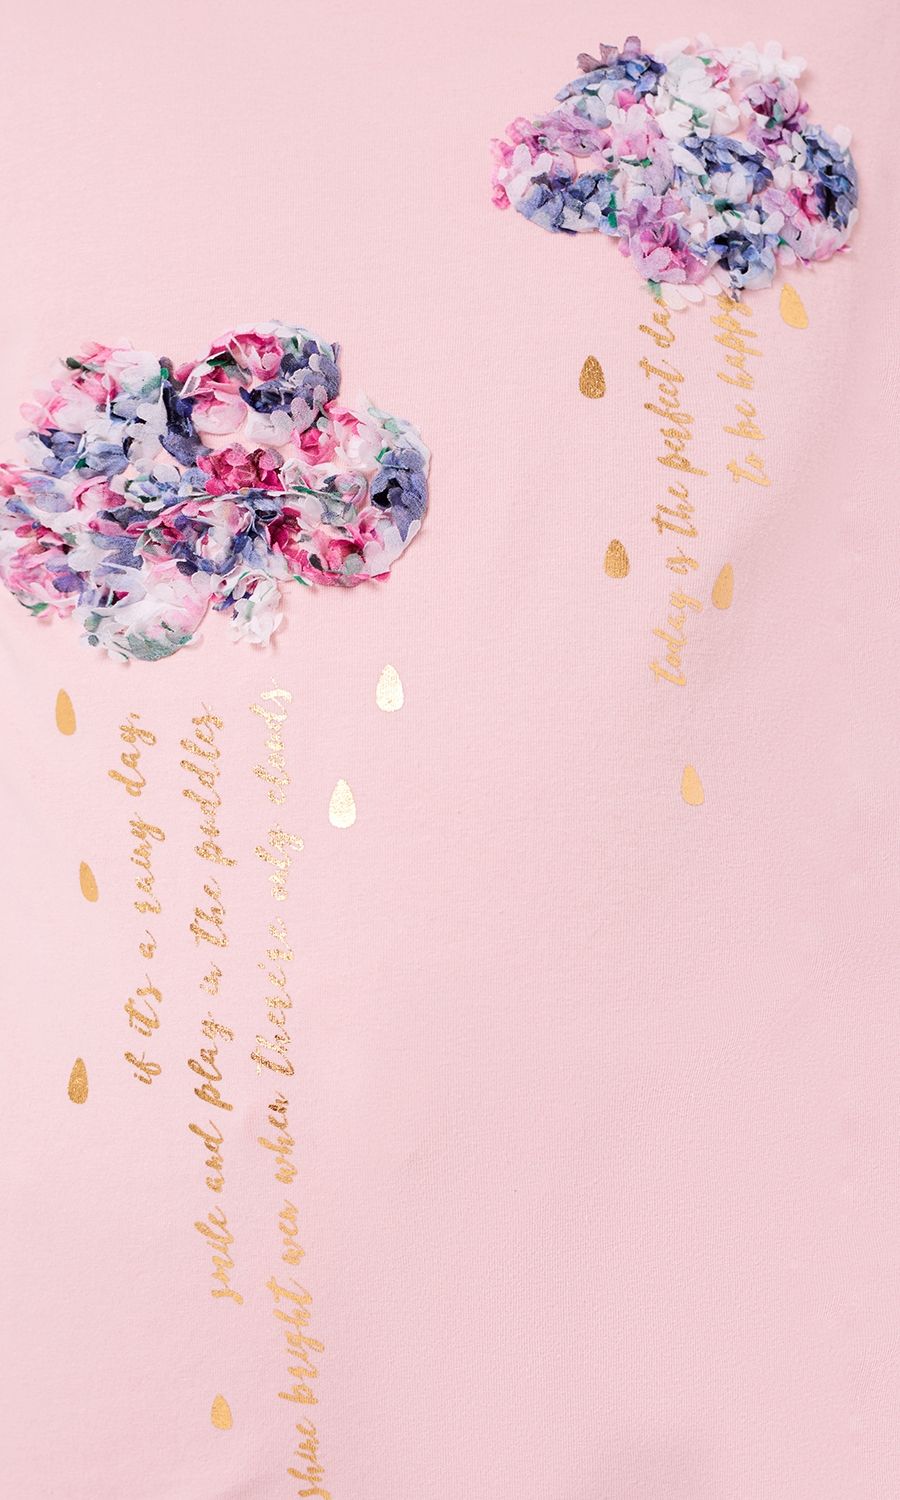 if it's a rainy day,
smile and play in the puddles
shine bright even when there're only clouds
today is the perfect day
to be happy